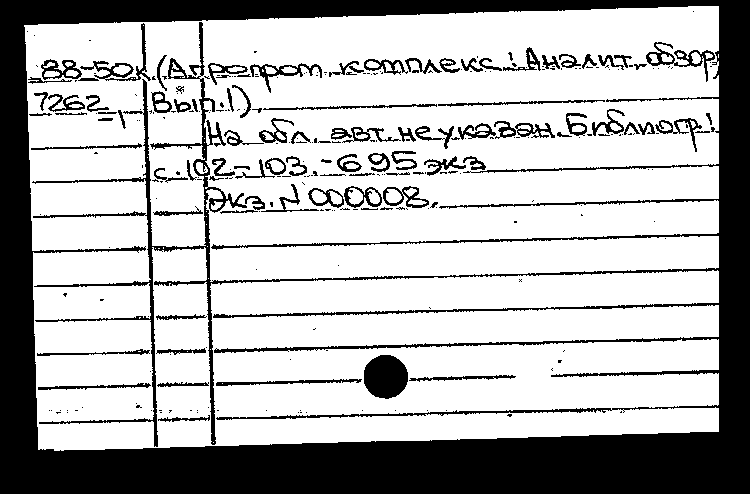 88-50к (Агропром. комплекс: Аналит. обзор;
7262-1 Вып.1).
На обл. авт. не указан. Библиогр:
с.102-103. - 695 экз
Экз. N 000008.